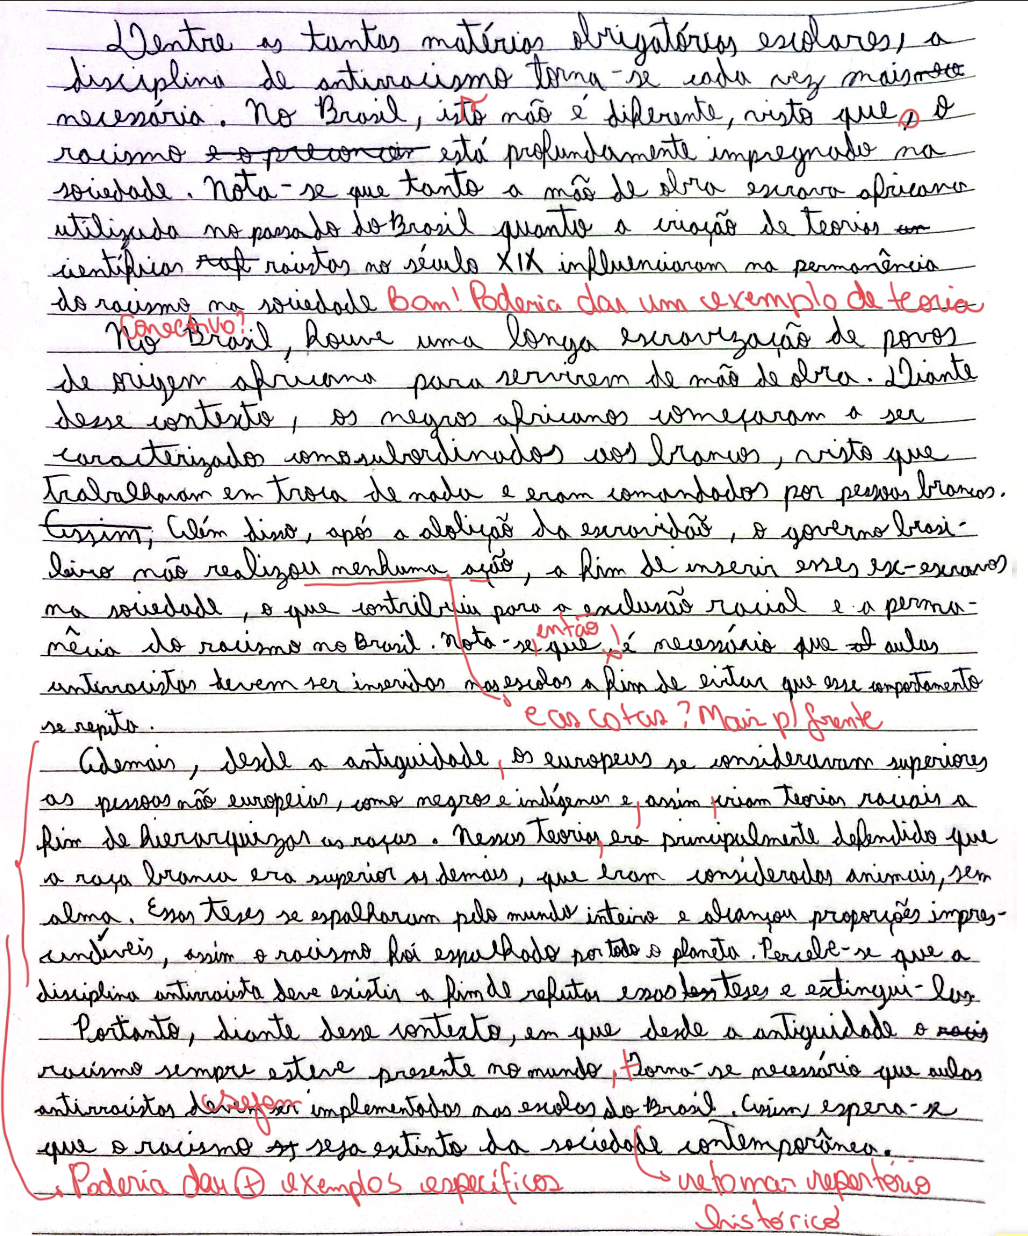 Dentre as tantas matérias obrigatórias escolares, a
disciplina de antirracismo torna-se cada vez mais
necessária. No Brasil, isto não é diferente, visto que, o
racismo e o preconcei está profundamente impregnado na
sociedade. Nota-se que tanto a mão de obra escrava africana
utilizada no passado do Brasil quanto a criação de teorias
científicas racistas no século XIX influenciaram na permanência
do racismo na sociedade Bom! Poderia dar um exemplo de teoria
Conectivo?
No Brasil, houve uma longa escravização de povos
de origem africana para servirem de mão de obra. Diante
desse contexto, os negros africanos começaram a ser
caracterizados como subordinados aos brancos, visto que
trabalhavam em troca de nada e eram comandados por pessoas brancas.
Assim, Além disso, após a abolição da escravidão, o governo brasi-
leiro não realizou nenhuma ação, a fim de inserir esses ex-escravos
na sociedade, o que contribuiu para a exclusão racial e a perma-
nência do racismo no Brasil. Nota-se, então, que é necessário que aulas
antirracistas devem ser inseridas nas escolas a fim de evitar que esse comportamento
se repita.
e as cotas? Mais p/ frente
Ademais, desde a antiguidade, os europeus se consideravam superiores
as pessoas não europeias, como negros e indígenas e, assim, criam teorias raciais a
fim de hierarquizar as raças. Nessas teorias, era principalmente defendido que
a raça branca era superior as demais, que eram consideradas animais, sem
alma. Essas teses se espalharam pelo mundo inteiro e alcançou proporções impres-
cindíveis, assim o racismo foi espalhado por todo o planeta. Percebe-se que a
disciplina antirracista deve existir a fim de refutar essas teses e extingui-las
Portanto, diante desse contexto, em que desde a antiguidade o racis
racismo sempre esteve presente no mundo, torna-se necessário que aulas
antirracistas devem ser sejam implementadas nas escolas do Brasil. Assim, espera-se
que o racismo seja extinto da sociedade contemporânea.
Poderia dar + exemplos específicos
retomar repertório
histórico